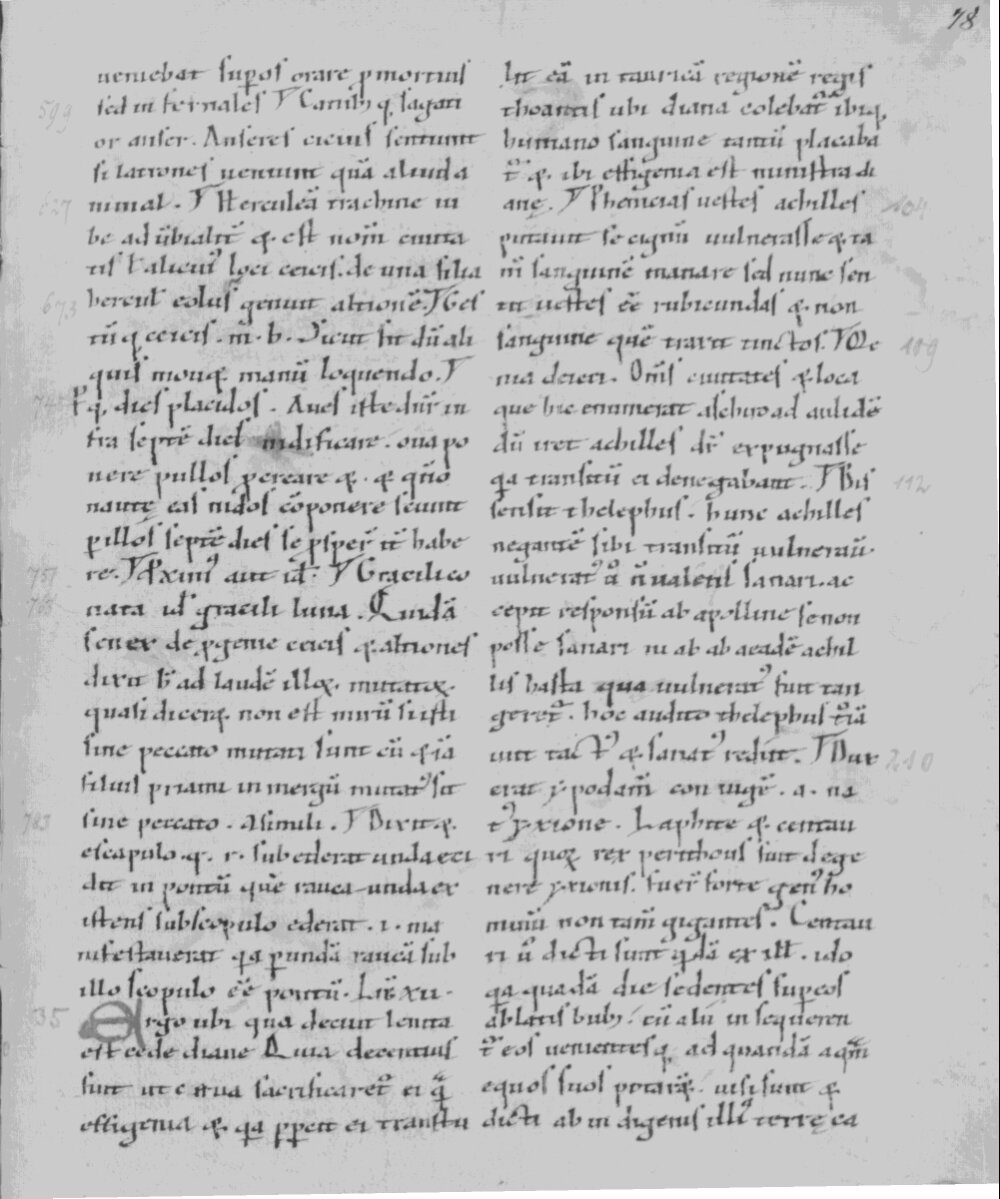 78
ueniebat sup̄os orare ꝓ mortuis
sed infernales ⁊ Canib; q. sagati
or anser. Anseres cicius sentiunt
si latrones ueniunt quā aliud a
nimal. ⁊ Herculeā trachine iu
be ad
est nom̄ ciuita
tis ł alicui᷒ loci ceicis. de una filia
hercul̄ eolus genuit altionē. ⁊ Ges
tū q ceicis. m. b. Dicit sic dū ali
quis mouet manū loquendo. ⁊
ꝑ q. dies placidos. Aues iste dn̄r in
fra septē dies nidificare. oua po
nere pullos ꝓcreare
nautę eas nidos cōponere sciunt
ꝑ illos septē dies se ꝓsper̄ it̄ habe
re. ⁊ aut id. ⁊ Gracili co
nata id̄ gracili luna. Quidā
senex de ꝓgenie ceicis altiones
dixit ad laudē illoꝝ mutatoꝝ.
quasi diceret. non est mirū si isti
sine peccato mutati sunt cū
filius priami in mergū mutat᷒ sit
sine peccato. a simili. ⁊ Dixit
e scapulo. q. r. sub ederat unda
dit in pontū quē rauca unda ex
istens sub scopulo ederat. i. ma
nifestauerat qa ꝑ undā raucā sub
illo scopulo eē pontū. Lib̄ xii.
Ergo ubi qua decuit lenita
est cede diane Quia decentius
fuit ut cerua sacrificaret̄ ei q̄
effigenia qa ꝑperit ei transtu
lit eā in tauricā regionē regis
thoantis ubi diana colebat̄ ibiq.
humano sanguine tantū placaba
t̄ ibi effigenia est ministra di
anę. ⁊ Phenicias uestes achilles
putauit se cignū uulnerasse
sanguinē manare sed nunc sen
tit uestes eē rubicundas non
sanguine quē traxit tinctos. ⁊ Me
nia deieci. Om̄s ciuitates loca
que hic enumerat a schiro ad aulidē
dū iret achilles dr̄ expugnasse
qa transitū ei denegabant. ⁊ Bis
sensit thelephus. hunc achilles
negantē sibi transitū uulnerau̅
uulnerat᷒ ū n̄ ualens sanari. ac
cepit responsū ab apolline se non
posse sanari ni ab ab eadē achil
lis hasta qua uulnerat᷒ fuit tan
geret̄. hoc audito thelephus
iuit tact᷒ sanat᷒ rediit. ⁊ Dux
erat ypodam̄ con iugē. a. na
t᷒ yxione. Laphite centau
ri quoꝝ rex perithous sunt de ge
nere yxionis. fuer̄ forte gen᷒ ho
minū non tam̄ gigantes. Centau
ri ū dicti sunt qdā ex ill. ido
qa quadā die sedentes sup̄ eos
ablatis bub; cū alii insequeren
t̄ eos uenientesq ad quandā aquā
equos suos potare. uisi sunt
dicti ab indigenis illi᷒ terrę ca
599
627
673
757
768
783
35
104
109
112
210